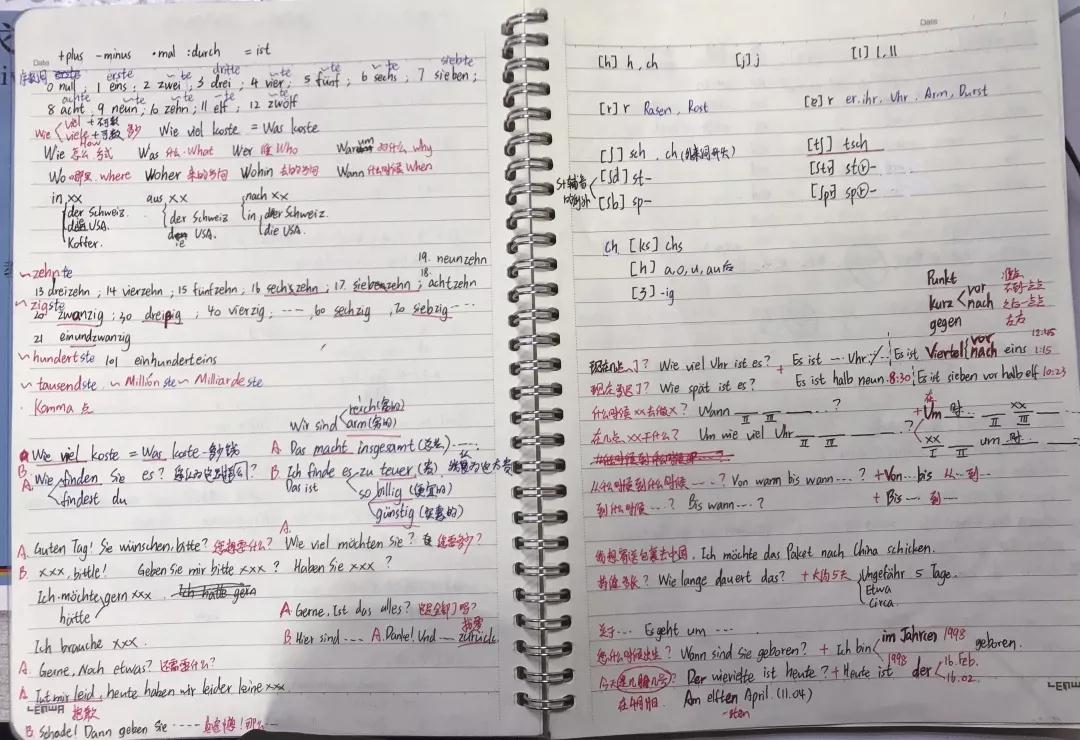 +plus -minus ·mal :durch = ist
Date
序数词 erste dritte siebte
0 null, 1 eins, 2 zwei, 3 drei, 4 vier, 5 fünf, 6 sechs, 7 sieben;
achte ~te ~te ~te
8 acht, 9 neun, 10 zehn, 11 elf, 12 zwölf
Wie viel + 不可数 viele + 可数 多少 Wie viel koste = Was koste
Wie 怎么 方式 How Was 什么 What Wer 谁 Who Warum 为什么 why
Wo 哪里 where Woher 来的方向 Wohin 去的方向 Wann 什么时候 When
in xx aus xx nach xx
der Schweiz. der Schweiz in der Schweiz.
die USA. die USA. die USA.
Koffer.
19. neunzehn
~zehnte 18.
13 dreizehn, 14 vierzehn, 15 fünfzehn, 16 sechszehn, 17 siebenzehn, achtzehn
~zigste
20 zwanzig, 30 dreißig, 40 vierzig, ---, 60 sechzig, 70 siebzig ----
21 einundzwanzig
~hundertste 101 einhunderteins
~tausendste ~Millionste ~Milliardeste
Komma 点
Wir sind reich (富的) arm (穷的)
Wie viel koste = Was koste 多少钱 A. Das macht insgesamt (总共) ----
B. A. Wie finden Sie es? B Ich finde es zu teuer (贵)
findest du Das ist so billig (便宜的)
günstig (实惠的)
A.
A. Guten Tag! Sie wünschen, bitte? 您想要什么? Wie viel möchten Sie? 您要多少?
B. xxx, bittle! Geben Sie mir bitte xxx? Haben Sie xxx?
Ich möchte gern xxx.
hätte A. Gerne. Ist das alles? 这是全部了吗?
Ich brauche xxx. B. Hier sind ---- A. Danke! Und — zurück.
A. Gerne, Noch etwas? 还需要什么?
A Tut mir leid, heute haben wir leider keine xxx.
抱歉
B Schade! Dann geben Sie ----
Date
[h] h, ch [j] j [l] l, ll
[r] r Rasen, Rost [ɐ] r er, ihr, Uhr, Arm, Durst
[ʃ] sch, ch (外来词开头) [tʃ] tsch
[ʃd] st- [ʃtr] st(r)-
[ʃb] sp- [ʃpr] sp(r)-
ch [ks] chs
[h] a, o, u, au后
[ʒ] -ig
Punkt 准点
kurz vor 不到一点点 nach 过后一点点
gegen 左右
12:45
现在几点了? Wie viel Uhr ist es? + Es ist --- Uhr. Es ist Viertel vor nach eins 1:15
现在多晚了? Wie spät ist es? Es ist halb neun. 8:30 Es ist sieben vor halb elf 10:23
什么时候xx去做x? Wann __ __ ---? + Um 时. __ xx __
II III II III
在几点, xx干什么? Um wie viel Uhr __ __ ---? xx __ um 时. __
II III I II III
从什么时候到什么时候 ---? Von wann bis wann ---? + Von --- bis 从---到---
到什么时候 ---? Bis wann ---? + Bis --- 到 ---
我想寄送包裹去中国. Ich möchte das Paket nach China schicken.
Wie lange dauert das? + 大约5天 Ungefähr 5 Tage.
Etwa
Circa.
关于 --- Es geht um ---
您什么时候出生? Wann sind Sie geboren? + Ich bin im Jahren 1998 geboren.
1998
今天是几月几号? Der wievielte ist heute? + Heute ist der 16. Feb.
16.02
在4月11日. Am elften April. (11.04)
-sten